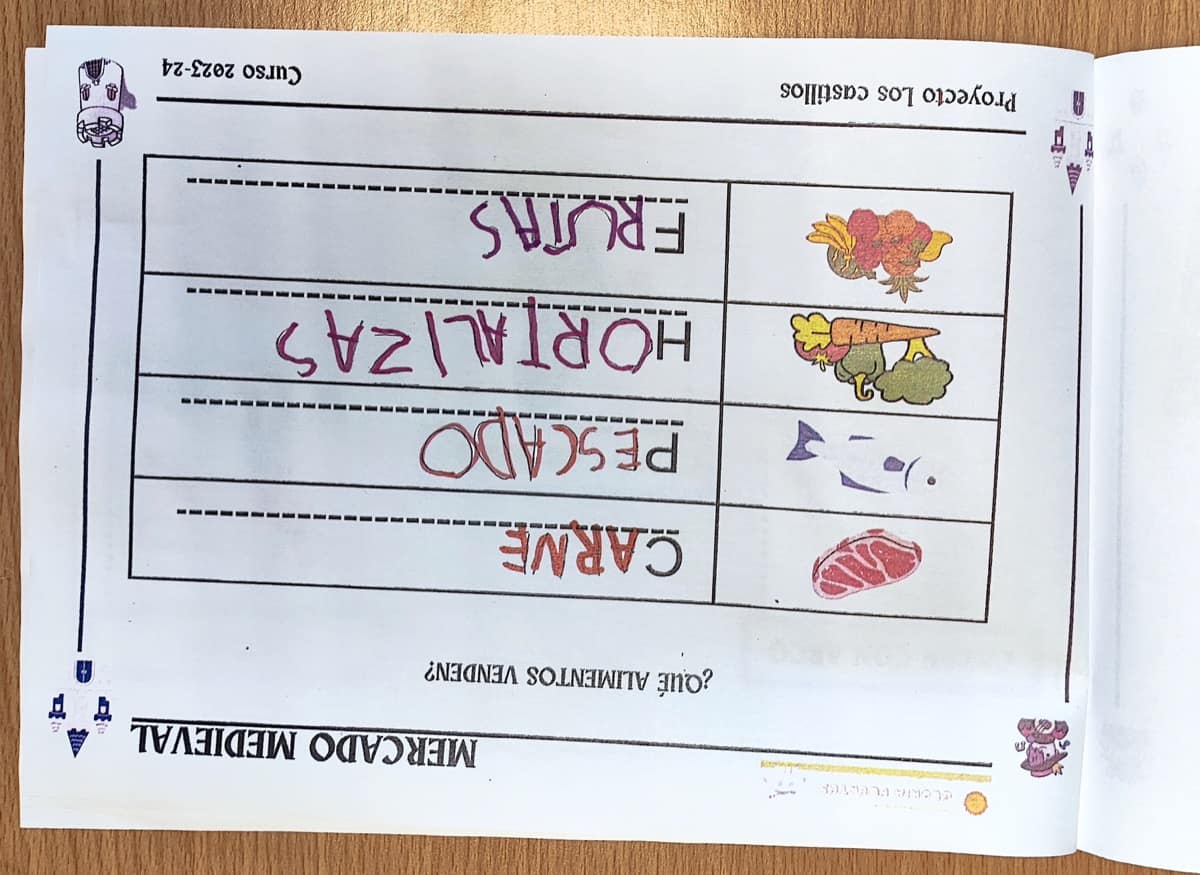 MERCADO MEDIEVAL
¿QUÉ ALIMENTOS VENDEN?
CARNE
PESCADO
HORTALIZAS
FRUTAS
Proyecto Los castillos
Curso 2023-24